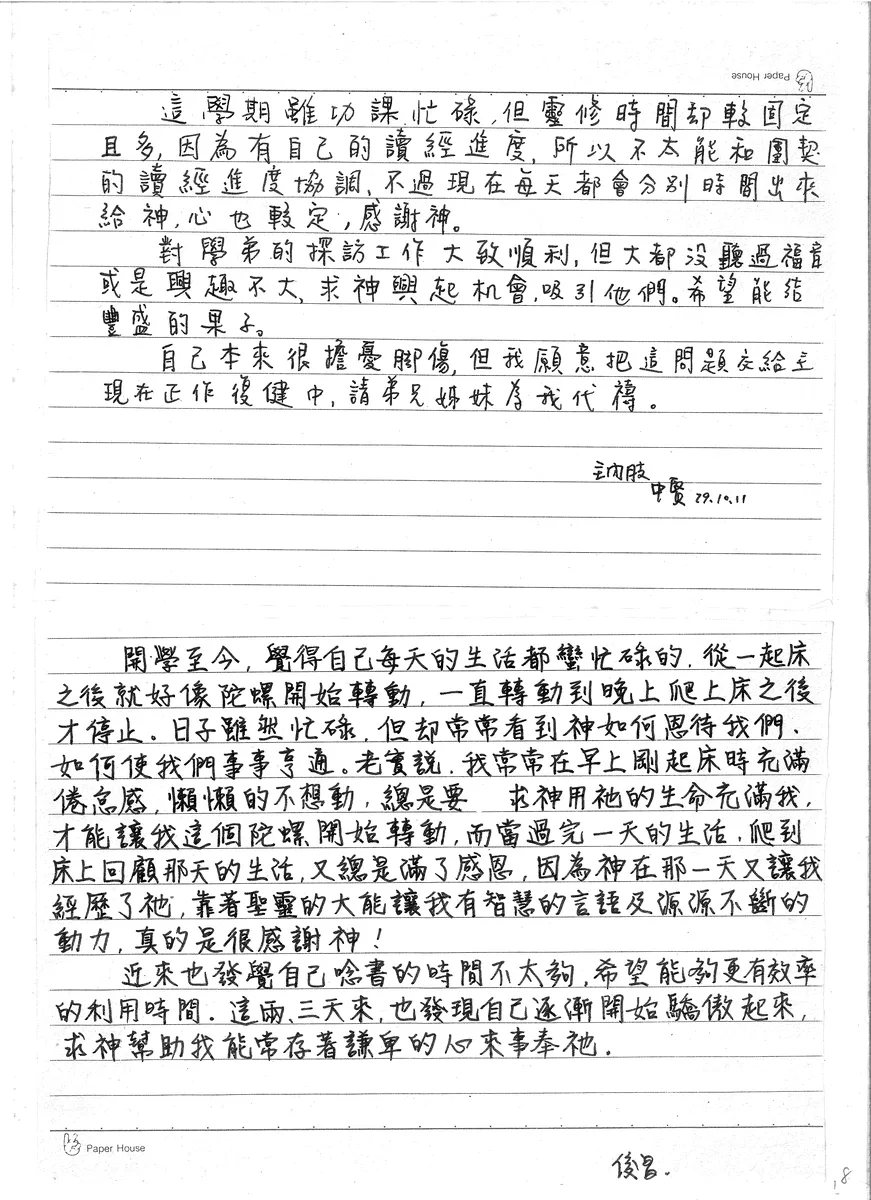 Paper House
這學期雖功課忙碌,但靈修時間却較固定
且多,因為有自己的讀經進度,所以不太能和團契
的讀經進度協調,不過現在每天都會分別時間出來
給神,心也較定,感謝神。
對學弟的探訪工作大致順利,但大都没聽過福音
或是興趣不大,求神興起机會,吸引他們。希望能結
豐盛的果子。
自己本來很擔憂脚傷,但我願意把這問題交給主
現在正作復健中,請弟兄姊妹為我代禱。
主内肢
中賢 79.10.11
開學至今,覺得自己每天的生活都蠻忙碌的,從一起床
之後就好像陀螺開始轉動,一直轉動到晚上爬上床之後
才停止.日子雖然忙碌,但却常常看到神如何恩待我們、
如何使我們事事亨通。老實說,我常常在早上剛起床時充滿
倦怠感,懶懶的不想動,總是要 求神用祂的生命充滿我,
才能讓我這個陀螺開始轉動,而當過完一天的生活,爬到
床上回顧那天的生活,又總是滿了感恩,因為神在那一天又讓我
經歷了祂,靠著聖靈的大能讓我有智慧的言語及源源不斷的
動力,真的是很感謝神!
近來也發覺自己唸書的時間不太夠,希望能夠更有效率
的利用時間.這兩、三天來,也發現自己逐漸開始驕傲起來,
求神幫助我能常存著謙卑的心來事奉祂.
Paper House
俊昌.
8